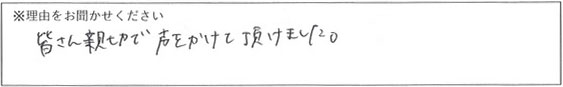 ※理由をお聞かせください
皆さん親切で声をかけて頂けました。